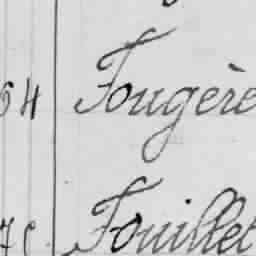 64 Fougère
Fouillet